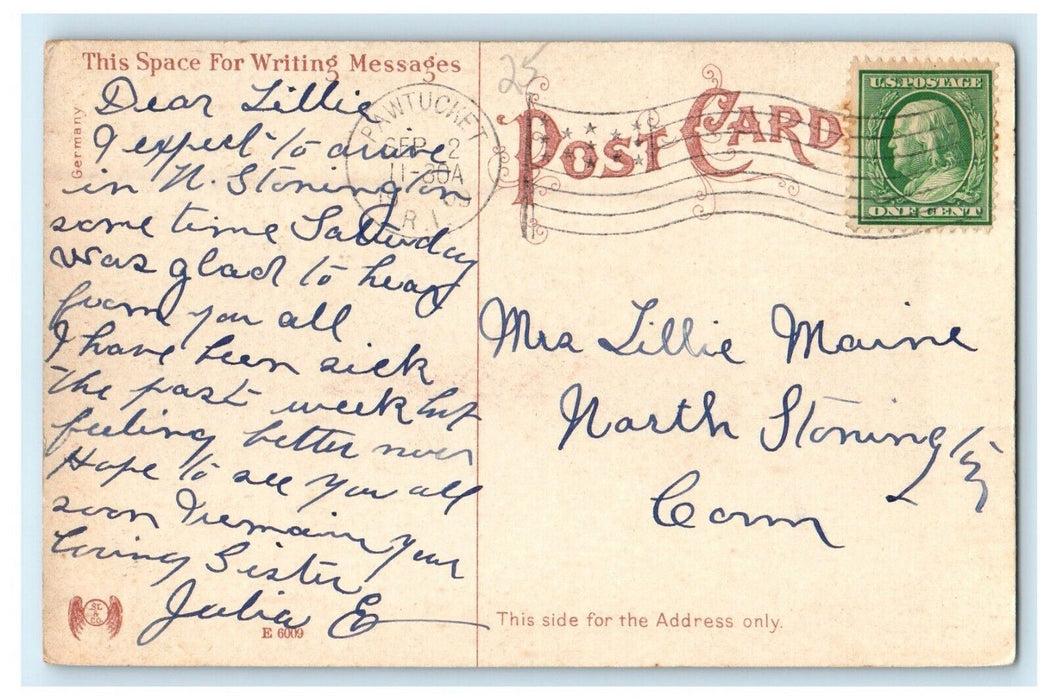 This Space For Writing Messages
Germany
Dear Lillie
I expect to arrive
in N. Stonington
some time Saturday
was glad to hear
from you all
I have been sick
the past week but
feeling better now
Hope to see you all
soon I remain your
loving Sister
Julia E
SL & CO
E 6009
25
PAWTUCKET
SEP 2
11-30A
R.I.
POST CARD
U.S. POSTAGE
ONE CENT
Mrs Lillie Maine
North Stonington
Conn
This side for the Address only.